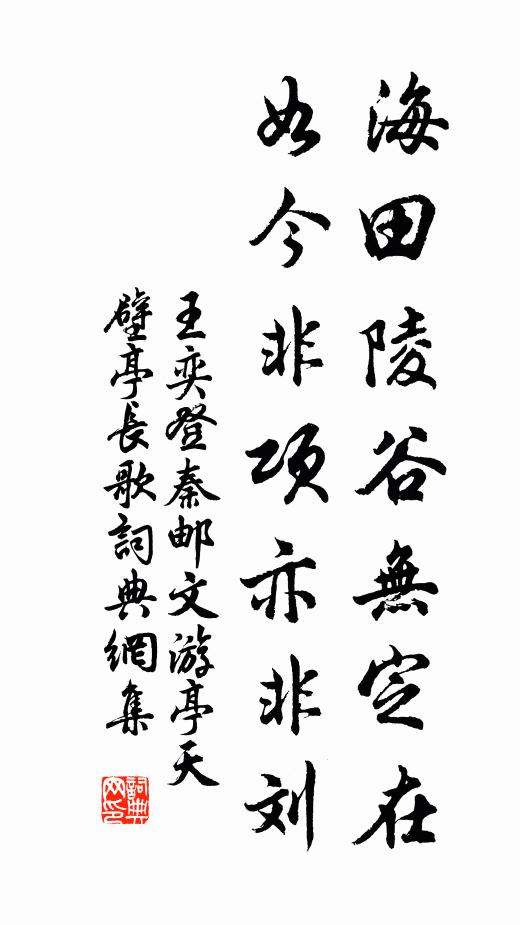 海田陵谷無定在
如今非項亦非刘
王奕登秦邮文游亭天
壁亭長歌詞典網集
詞典
网印